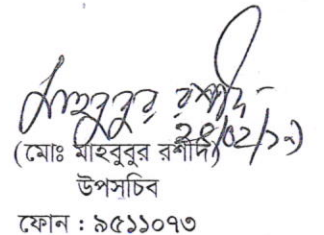 মাহবুবুর রশীদ
(মোঃ মাহবুবুর রশীদ)
উপসচিব
ফোন : ৯৫১১০৭৩